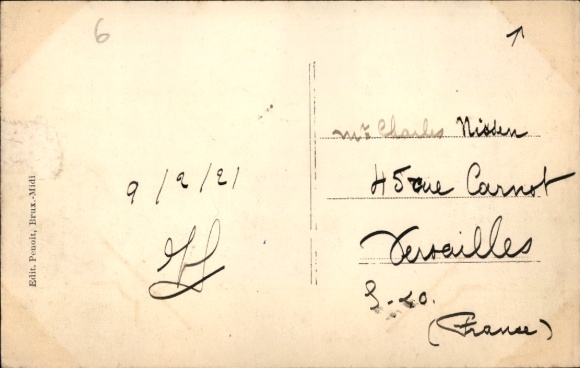 6
9/2/21
Edit. Penoit, Brux.-Midi
Mr Charles Nissen
45 rue Carnot
Versailles
S.-&O.
(France)